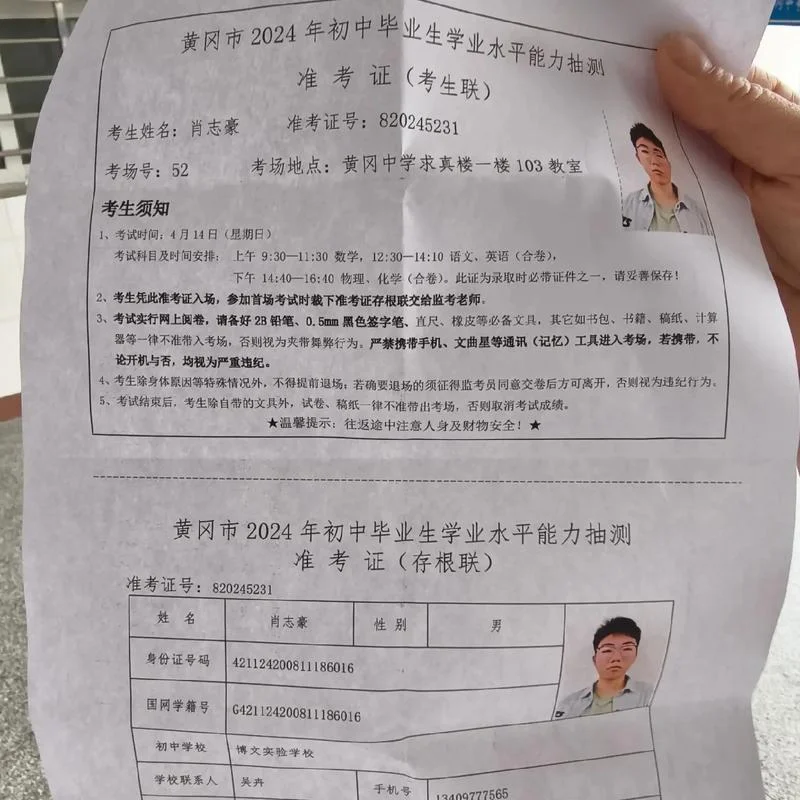 黄冈市 2024 年初中毕业生学业水平能力抽测
准 考 证（考生联）
考生姓名：肖志豪 准考证号：820245231
考场号：52 考场地点：黄冈中学求真楼一楼 103 教室
考生须知
1、考试时间：4 月 14 日（星期日）
考试科目及时间安排： 上午 9:30—11:30 数学，12:30—14:10 语文、英语（合卷），
下午 14:40—16:40 物理、化学（合卷）。此证为录取时必带证件之一，请妥善保存！
2、考生凭此准考证入场，参加首场考试时裁下准考证存根联交给监考老师。
3、考试实行网上阅卷，请备好 2B 铅笔、0.5mm 黑色签字笔、直尺、橡皮等必备文具，其它如书包、书籍、稿纸、计算
器等一律不准带入考场，否则视为夹带舞弊行为。严禁携带手机、文曲星等通讯（记忆）工具进入考场，若携带，不
论开机与否，均视为严重违纪。
4、考生除身体原因等特殊情况外，不得提前退场；若确要退场的须征得监考员同意交卷后方可离开，否则视为违纪行为。
5、考试结束后，考生除自带的文具外，试卷、稿纸一律不准带出考场，否则取消考试成绩。
★温馨提示：往返途中注意人身及财物安全！★
黄冈市 2024 年初中毕业生学业水平能力抽测
准 考 证（存根联）
准考证号：820245231
姓 名 肖志豪 性 别 男
身份证号码 421124200811186016
国网学籍号 G421124200811186016
初中学校 博文实验学校
学校联系人 吴卉 手机号 13409777565